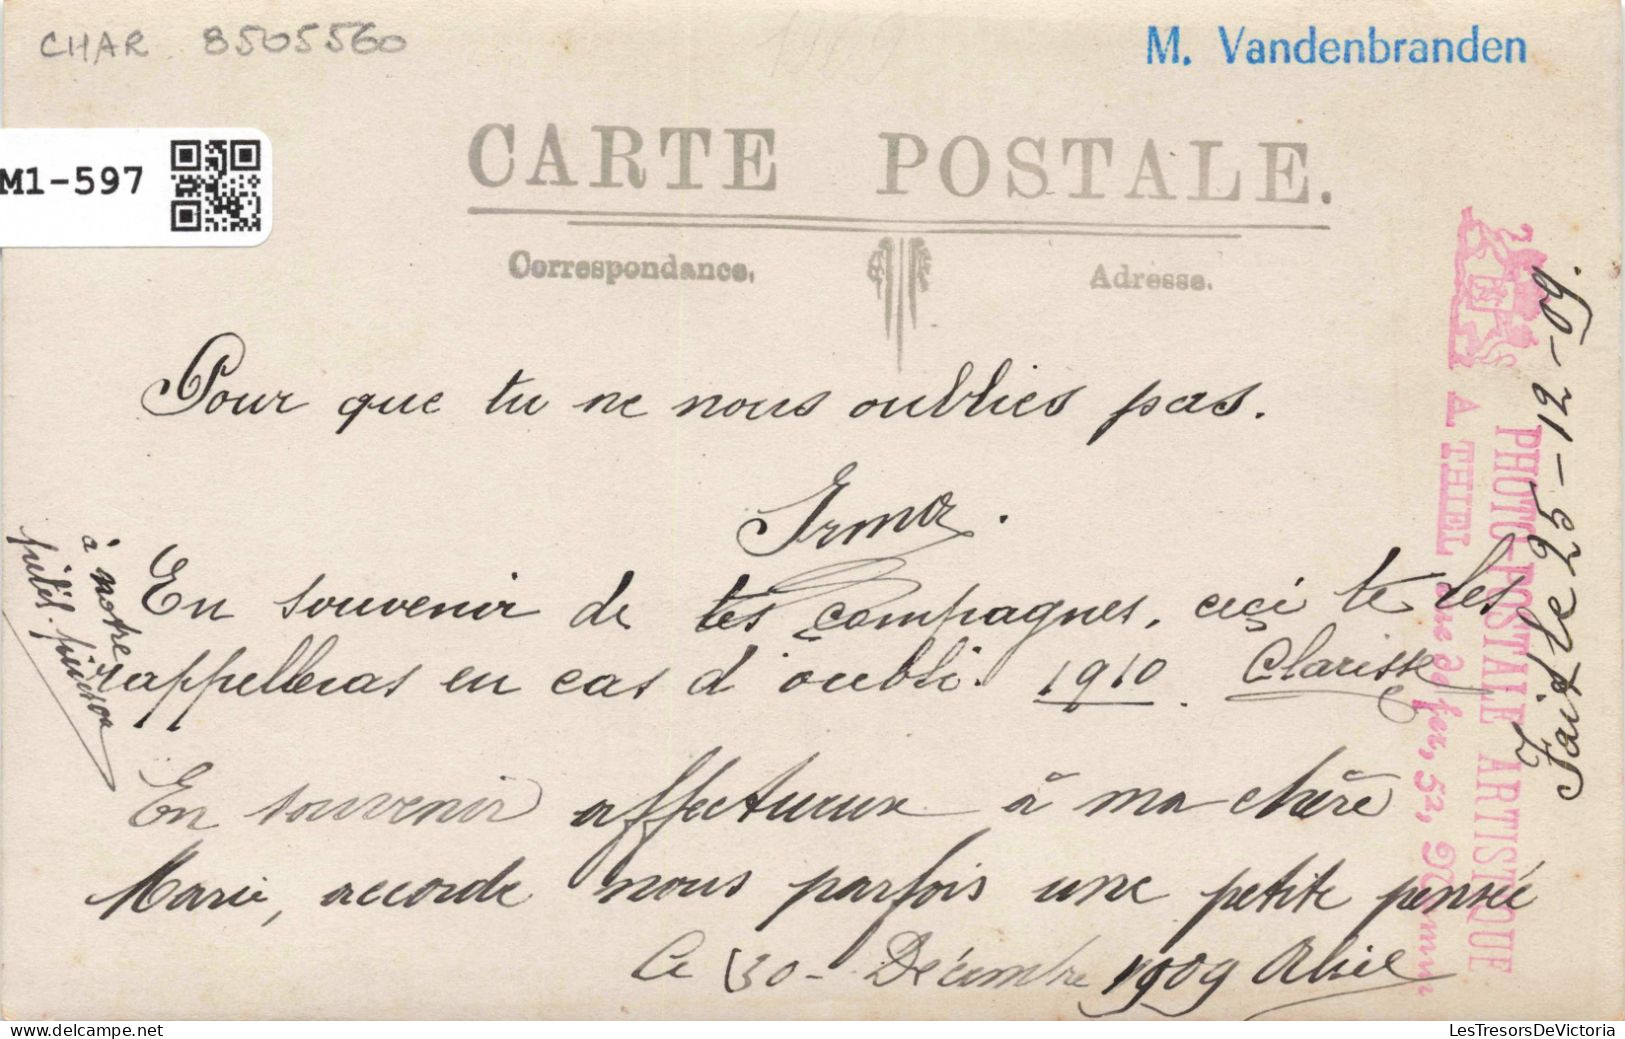 CHAR 8505560
M. Vandenbranden
M1-597
CARTE POSTALE.
Correspondance.
Adresse.
Pour que tu ne nous oublies pas.
Irma.
En souvenir de tes compagnes, ceci te les
rappelleras en cas d'oubli. 1910. Clarisse
à notre
En souvenir affectueux à ma chère
Marie, accorde nous parfois une petite pensée
Ce 30 - Décembre 1909
Fait le 25-12-09.
PHOTO-POSTALE ARTISTIQUE
A. THIEL rue de fer, 52, Namur
LesTresorsDeVictoria